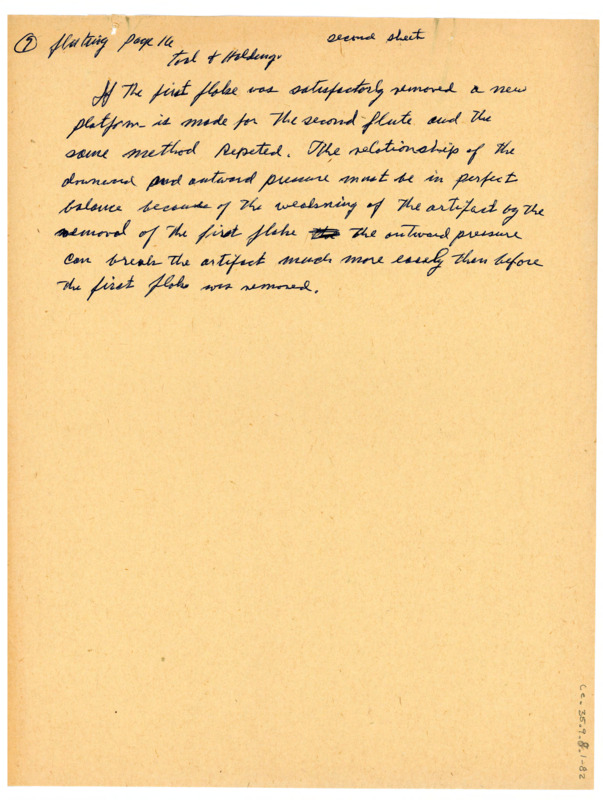 ⑨ fluting page 16 second sheet
Tool & Holding.
If the first flake was satisfactorly removed a new
platform is made for the second flute and the
same method Repeted. The relationship of the
downward and outward pressure must be in perfect
balance because of the weakning of the artifact by the
removal of the first flake the the outward pressure
can break the artifact much more easely than before
the first flake was removed.
Ce.35.9.8.1-82